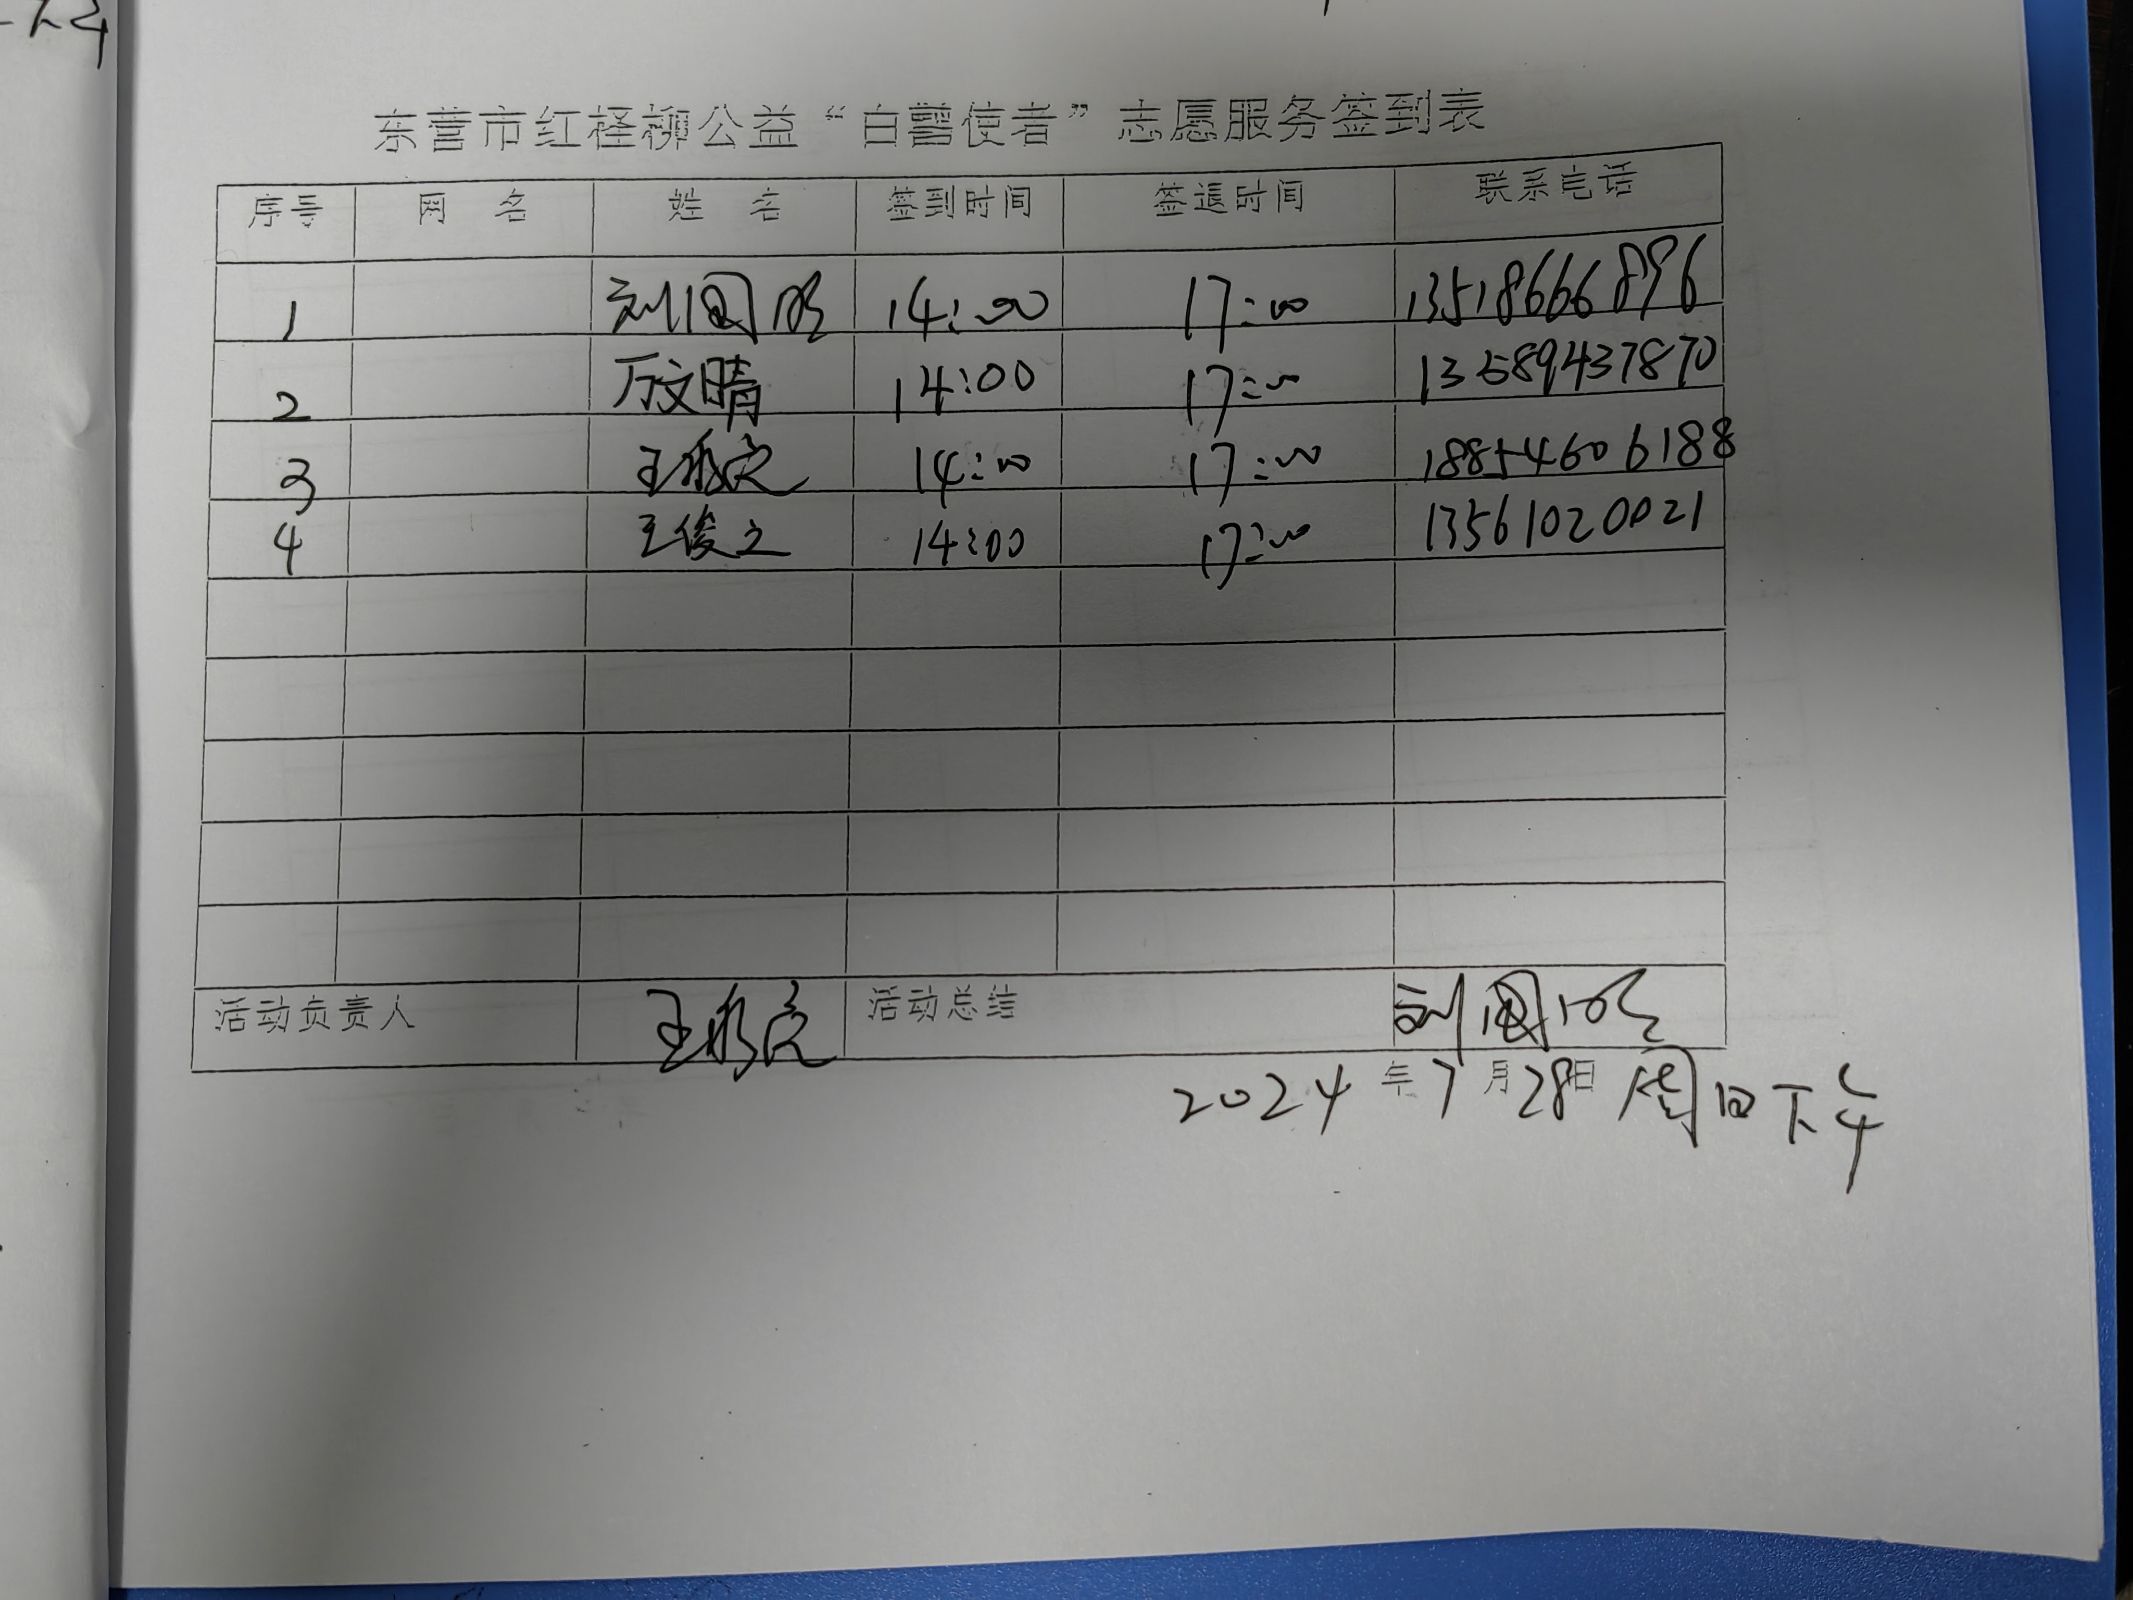 东营市红柽柳公益“白鹭使者”志愿服务签到表
序号 网 名 姓 名 签到时间 签退时间 联系电话
1 刘国明 14:00 17:00 13518666896
2 万文晴 14:00 17:00 13589437870
3 王 14:00 17:00 18854606188
4 王俊之 14:00 17:00 13561020021
活动负责人 王 活动总结 刘国明
2024年7月28日 周日下午